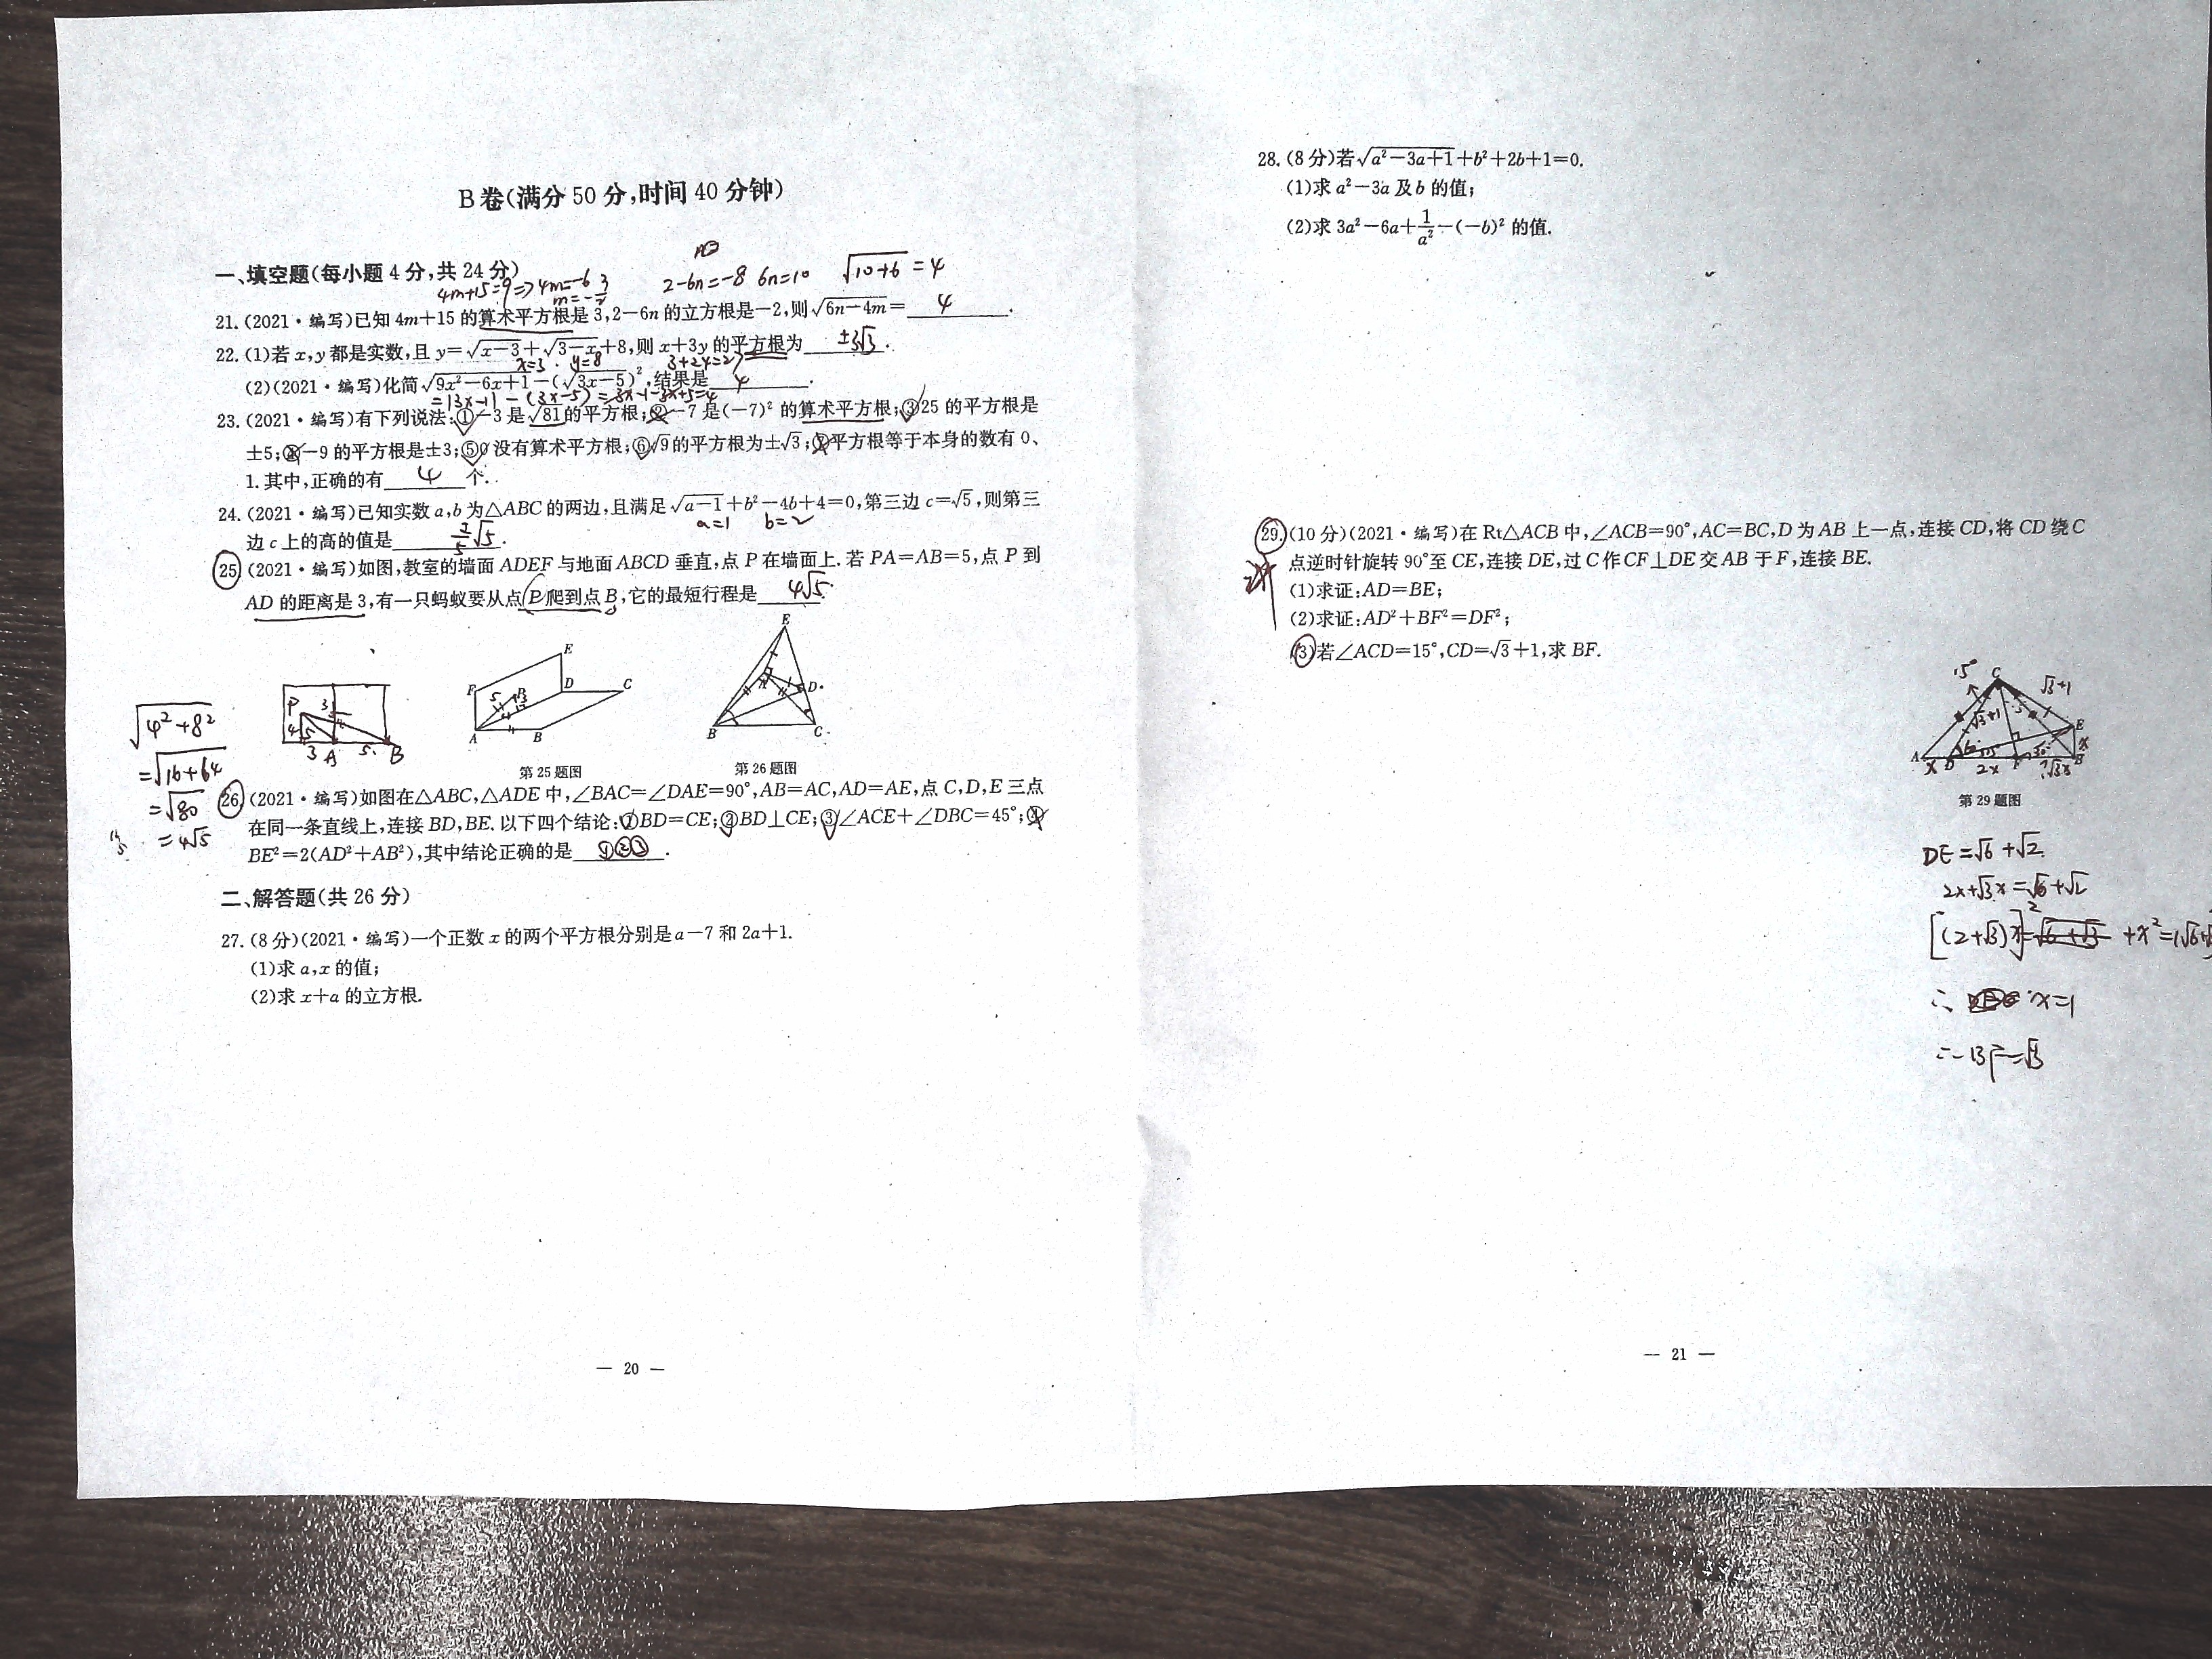 B卷(满分50分,时间40分钟)
一、填空题(每小题4分,共24分)
4m+15=9⇒4m=-6
2-6n=-8 6n=10 √(10+6)=4
21.(2021·编写)已知4m+15的算术平方根是3,2-6n的立方根是-2,则√(6n-4m)=4.
22.(1)若x,y都是实数,且y=√(x-3)+√(3-x)+8,则x+3y的平方根为±3√3.
x=3 y=8 3+24=27
(2)(2021·编写)化简√(9x²-6x+1)-(√(3x-5))²,结果是4.
=|3x-1|-(3x-5)=3x-1-3x+5=4
23.(2021·编写)有下列说法:①-3是√81的平方根;②-7是(-7)²的算术平方根;③25的平方根是
±5;④-9的平方根是±3;⑤0没有算术平方根;⑥√9的平方根为±√3;⑦平方根等于本身的数有0、
1.其中,正确的有4个.
24.(2021·编写)已知实数a,b为△ABC的两边,且满足√(a-1)+b²-4b+4=0,第三边c=√5,则第三
a=1 b=2
边c上的高的值是2/5√5.
25.(2021·编写)如图,教室的墙面ADEF与地面ABCD垂直,点P在墙面上.若PA=AB=5,点P到
AD的距离是3,有一只蚂蚁要从点P爬到点B,它的最短行程是4√5.
√(4²+8²)
=√(16+64)
=√80
=4√5
P 3 4 5 3 A 5 B
F E D C A B P 5 3
E A D B C
第25题图
第26题图
26.(2021·编写)如图在△ABC,△ADE中,∠BAC=∠DAE=90°,AB=AC,AD=AE,点C,D,E三点
在同一条直线上,连接BD,BE.以下四个结论:①BD=CE;②BD⊥CE;③∠ACE+∠DBC=45°;④
BE²=2(AD²+AB²),其中结论正确的是①②③.
二、解答题(共26分)
27.(8分)(2021·编写)一个正数x的两个平方根分别是a-7和2a+1.
(1)求a,x的值;
(2)求x+a的立方根.
— 20 —
28.(8分)若√(a²-3a+1)+b²+2b+1=0.
(1)求a²-3a及b的值;
(2)求3a²-6a+1/a²-(-b)²的值.
29.(10分)(2021·编写)在Rt△ACB中,∠ACB=90°,AC=BC,D为AB上一点,连接CD,将CD绕C
点逆时针旋转90°至CE,连接DE,过C作CF⊥DE交AB于F,连接BE.
(1)求证:AD=BE;
(2)求证:AD²+BF²=DF²;
(3)若∠ACD=15°,CD=√3+1,求BF.
15° C √3+1
√3+1 E
A x D 2x F √3x B x
第29题图
DE=√6+√2
2x+√3x=√6+√2
[(2+√3)x]² +x²=(√6+
∴ x=1
∴BF=√3
— 21 —